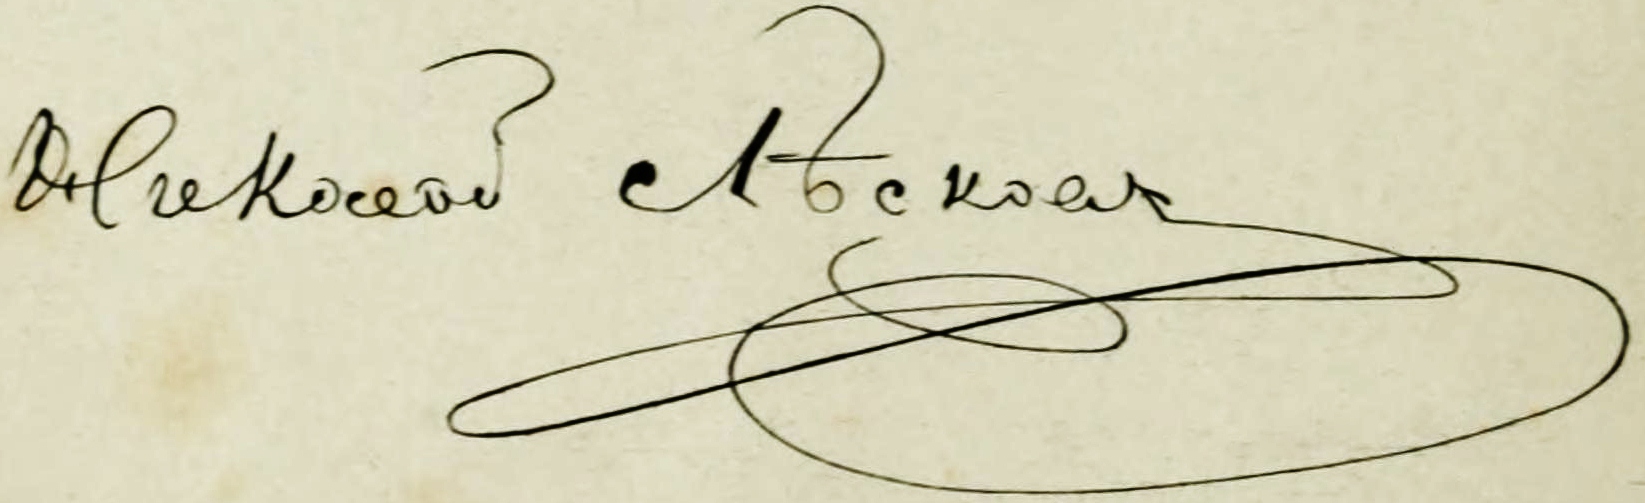 Николай Лѣсковъ